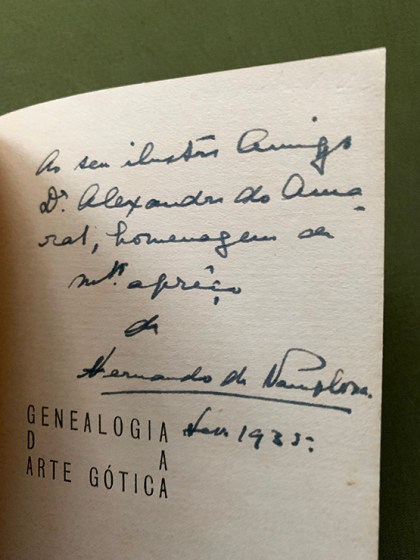 Ao seu ilustre Amigo
Dr. Alexandre do Ama-
ral, homenagem de
mto. aprêço
de
Fernando de Pamplona.
1935.
GENEALOGIA
D A
ARTE GÓTICA